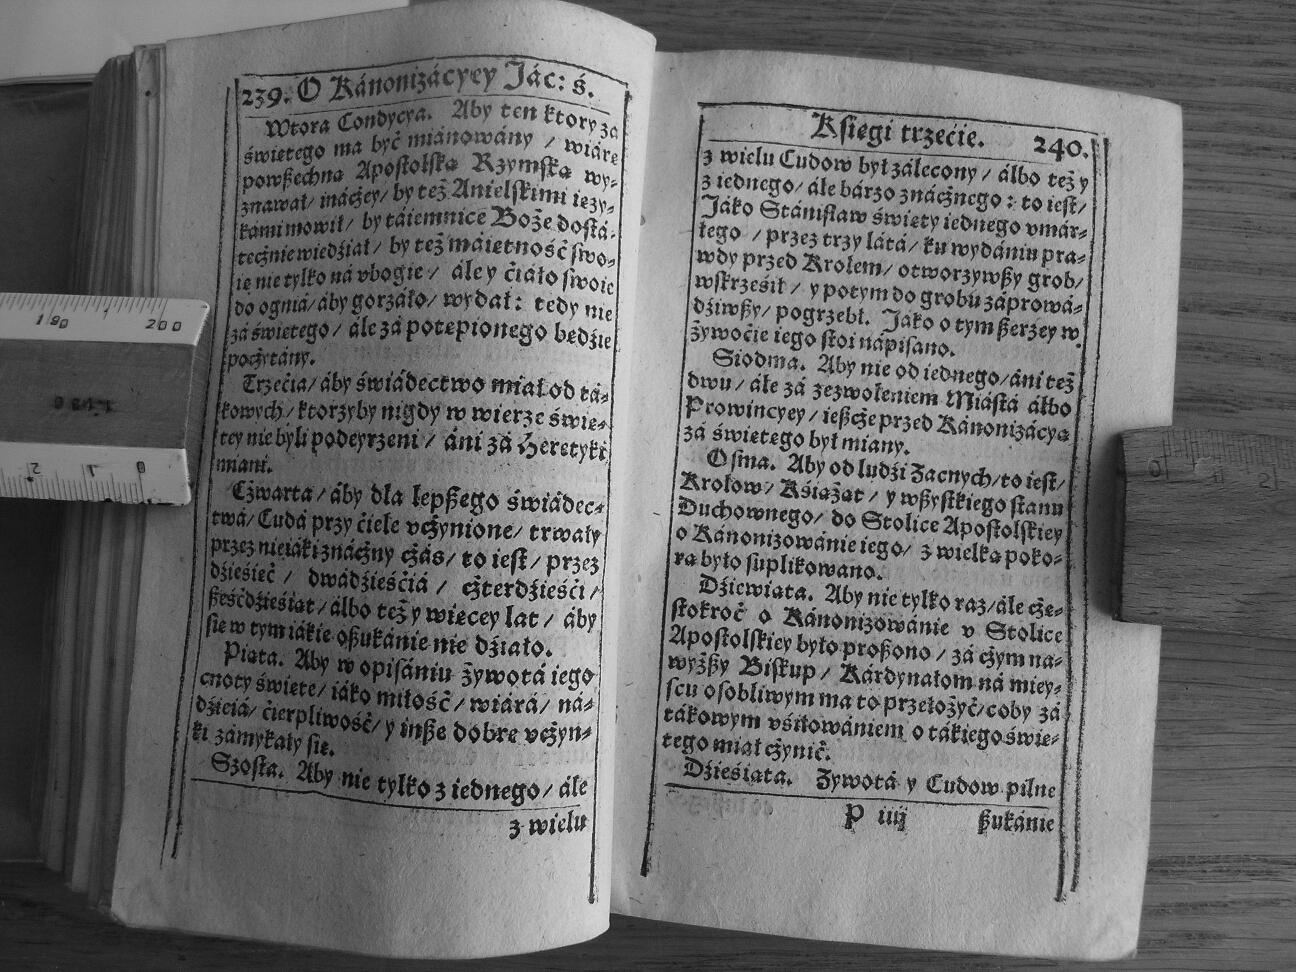 239. O Kánonizácyey Jác: ś.
Wtora Condycya. Aby ten ktory zá
świętego ma być miánowány / wiárę
powßechną Apostolską Rzymską wy-
znawał/ ináczey/ by też Anielskimi ięzy-
kami mowił/ by táiemnice Boże dostá-
tecżnie wiedźiał/ by też máiętność swo-
ię nie tylko ná vbogie/ ále y ćiáło swoie
do ogniá/ áby gorzáło/ wydał: tedy nie
zá świętego/ ále zá potępionego będźie
pocżytány.
Trzećia/ áby świádectwo miał od tá-
kowych/ ktorzyby nigdy w wierze świę-
tey nie byli podeyrzeni/ áni zá Heretyki
miáni.
Czwarta/ áby dla lepßego świádec-
twá/ Cudá przy ćiele vcżynione/ trwáły
przez nieiáki znácżny cżás/ to iest/ przez
dźieśięć/ dwádźieśćiá/ cżterdźieśći/
ßeśćdźieśiąt/ álbo też y więcey lat/ áby
się w tym iákie oßukánie nie dźiáło.
Piąta. Aby w opisániu żywotá iego
cnoty święte/ iáko miłość/ wiárá/ ná-
dźieiá/ ćierpliwość/ y inße dobre vcżyn-
ki zámykáły się.
Szosta. Aby nie tylko z iednego/ ále
z wielu
Kśięgi trzećie. 240.
z wielu Cudow był zálecony/ álbo też y
z iednego/ ále bárzo znácżnego: to iest/
Jáko Stánisław święty iednego vmár-
łego/ przez trzy látá/ ku wydániu pra-
wdy przed Krolem/ otworzywßy grob/
wskrześił/ y potym do grobu záprowá-
dźiwßy/ pogrzebł. Jáko o tym ßerzey w
żywoćie iego stoi nápisano.
Siodma. Aby nie od iednego/ áni też
dwu/ ále zá zezwoleniem Miástá álbo
Prowincyey/ ießcże przed Kánonizácyą
zá świętego był miány.
Osma. Aby od ludźi zacnych/ to iest/
Krolow/ Kśiążąt/ y wßystkiego stanu
Duchownego/ do Stolice Apostolskiey
o Kánonizowánie iego/ z wielką poko-
rą było suplikowano.
Dźiewiąta. Aby nie tylko raz/ ále cżę-
stokroć o Kánonizowánie v Stolice
Apostolskiey było proßono/ zá cżym na-
wyżßy Biskup/ Kárdynałom ná miey-
scu osobliwym ma to przełożyć/ coby zá
tákowym vśiłowániem o tákiego świę-
tego miał cżynić.
Dźieśiąta. Żywotá y Cudow pilne
P iiij ßukánie
190 200
2 1 0
0 1 2